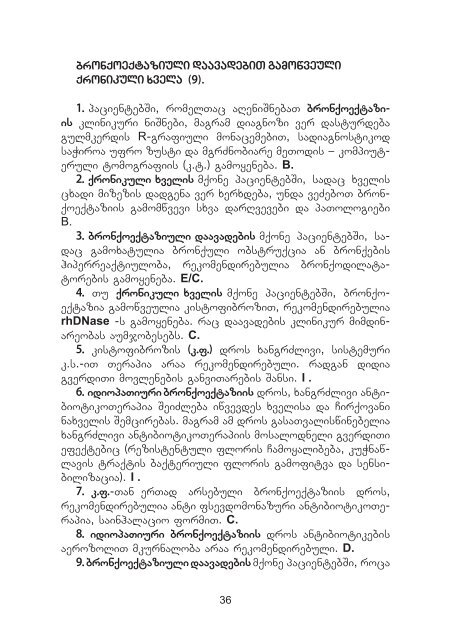 ბრონქოექტაზიული დაავადებით გამოწვეული
ქრონიკული ხველა (9).
1. პაციენტებში, რომელთაც აღენიშნებათ ბრონქოექტაზი-
ის კლინიკური ნიშნები, მაგრამ დიაგნოზი ვერ დასტურდება
გულმკერდის R-გრაფიული მონაცემებით, სადიაგნოსტიკოდ
საჭიროა უფრო ზუსტი და მგრძნობიარე მეთოდის – კომპიუტ-
ერული ტომოგრაფიის (კ.ტ.) გამოყენება. B.
2. ქრონიკული ხველის მქონე პაციენტებში, სადაც ხველის
ცხადი მიზეზის დადგენა ვერ ხერხდება, უნდა ვეძებოთ ბრონ-
ქოექტაზიის გამომწვევი სხვა დარღვევები და პათოლოგიები
B.
3. ბრონქოექტაზიული დაავადების მქონე პაციენტებში, სა-
დაც გამოხატულია ბრონქული ობსტრუქცია ან ბრონქების
ჰიპერრეაქტიულობა, რეკომენდირებულია ბრონქოდილატა-
ტორების გამოყენება. E/C.
4. თუ ქრონიკული ხველის მქონე პაციენტებში, ბრონქო-
ექტაზია გამოწვეულია კისტოფიბროზით, რეკომენდირებულია
rhDNase -ს გამოყენება. რაც დაავადების კლინიკურ მიმდინ-
არეობას აუმჯობესებს. C.
5. კისტოფიბროზის (კ.ფ.) დროს ხანგრძლივი, სისტემური
კ.ს.-ით თერაპია არაა რეკომენდირებული. რადგან დიდია
გვერდითი მოვლენების განვითარების შანსი. I .
6. იდიოპათიური ბრონქოექტაზიის დროს, ხანგრძლივი ანტი-
ბიოტიკოთერაპია შეიძლება იწვევდეს ხველისა და ჩირქოვანი
ნახველის შემცირებას. მაგრამ ამ დროს გასათვალისწინებელია
ხანგრძლივი ანტიბიოტიკოთერაპიის მოსალოდნელი გვერდითი
ეფექტებიც (რეზისტენტული ფლორის ჩამოყალიბება, კუჭნაწ-
ლავის ტრაქტის ბაქტერიული ფლორის გამოფიტვა და სენსი-
ბილიზაცია). I .
7. კ.ფ.-თან ერთად არსებული ბრონქოექტაზიის დროს,
რეკომენდირებულია ანტი ფსევდომონაზური ანტიბიოტიკოთე-
რაპია, საინჰალაციო ფორმით. C.
8. იდიოპათიური ბრონქოექტაზიის დროს ანტიბიოტიკების
აეროზოლით მკურნალობა არაა რეკომენდირებული. D.
9. ბრონქოექტაზიული დაავადების მქონე პაციენტებში, როცა
36